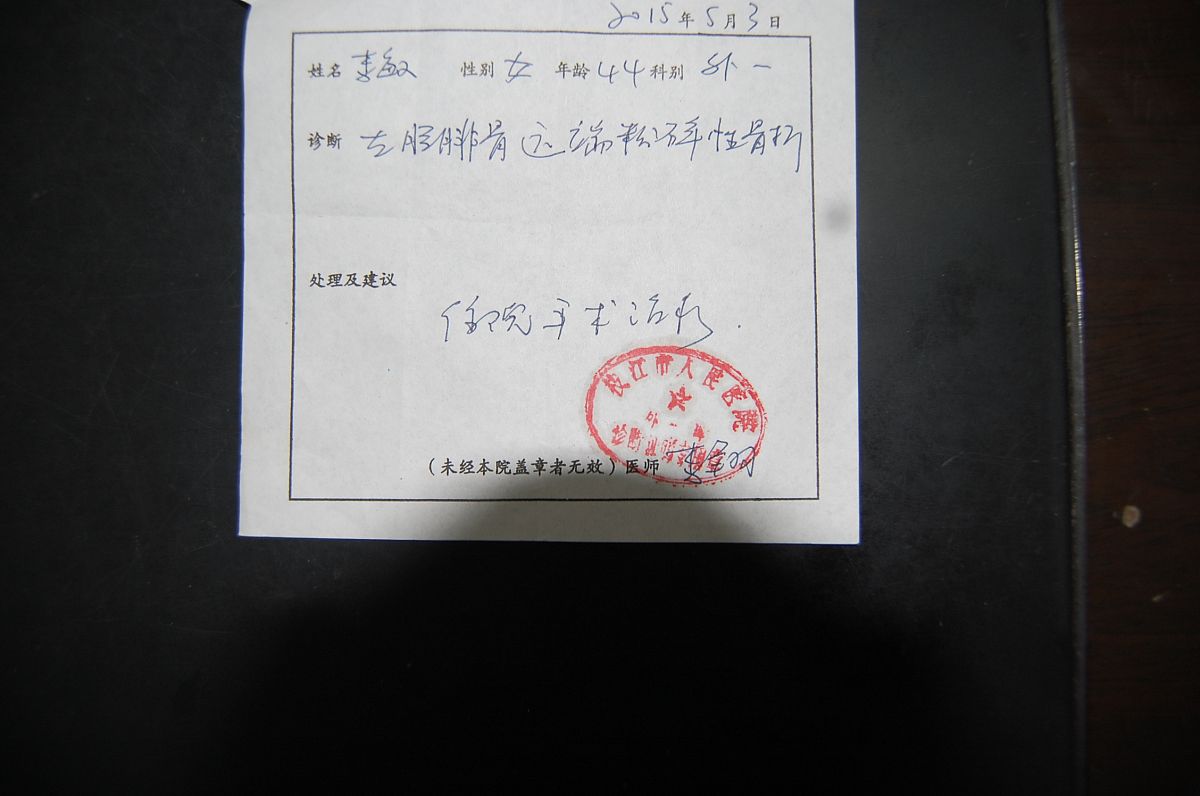 2015年5月3日
姓名 李敏 性别 女 年龄 44 科别 外一
诊断 左胫腓骨远端粉碎性骨折
处理及建议
住院手术治疗.
枝江市人民医院
外一
(未经本院盖章者无效)医师